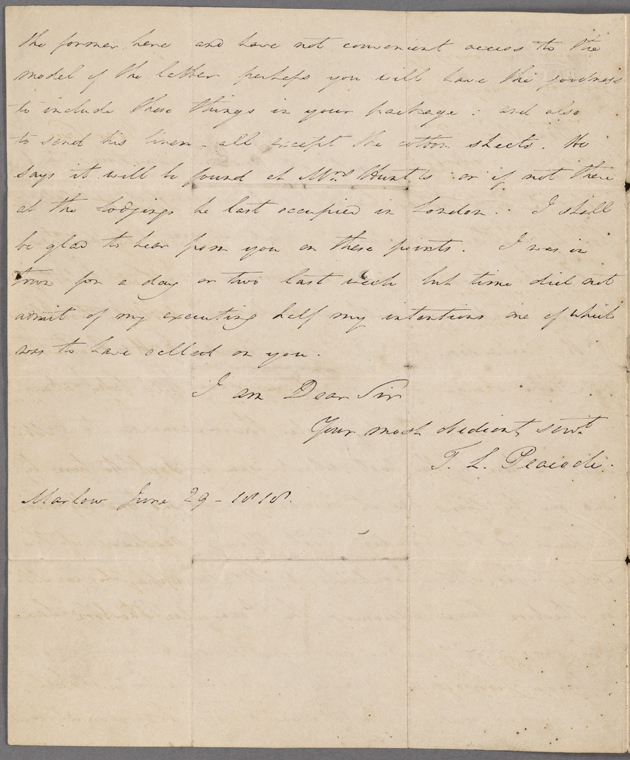 the former here and have not convenient access to the
model of the latter perhaps you will have the goodness
to include these things in your package: and also
to send his linen - all except the cotton sheets. He
says it will be found at Mrs. Hunt's or if not there
at the lodgings he last occupied in London. I shall
be glad to hear from you on these points. I was in
town for a day or two last week but time did not
admit of my executing half my intentions one of which
was to have called on you.
I am Dear Sir
Your most obedient servt.
T. L. Peacock.
Marlow June 29 - 1818.